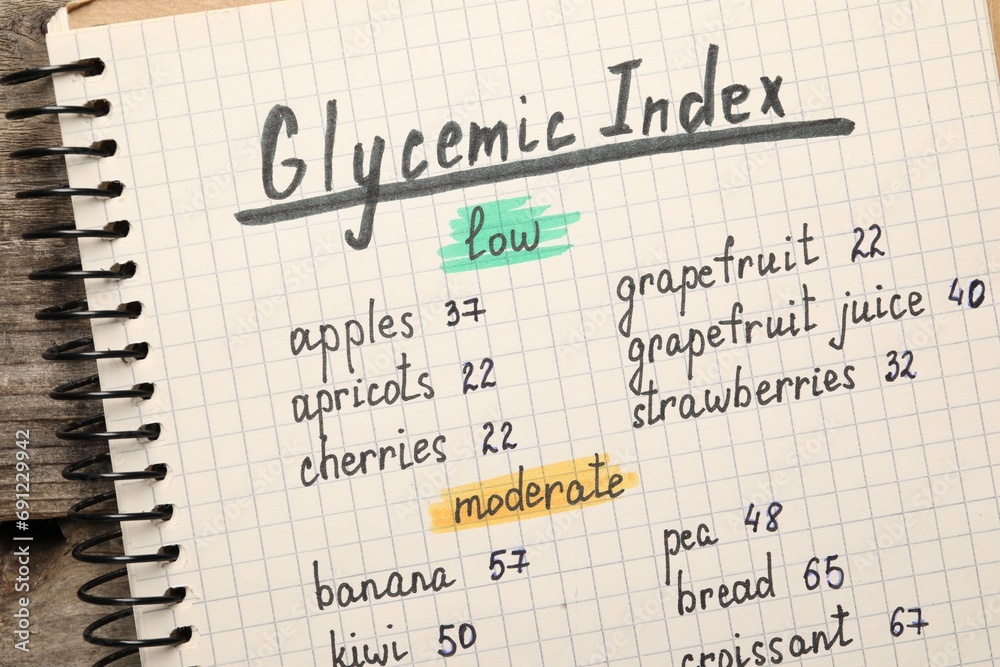 Glycemic Index
low
apples 37
apricots 22
cherries 22
grapefruit 22
grapefruit juice 40
strawberries 32
moderate
banana 57
kiwi 50
pea 48
bread 65
croissant 67
Adobe Stock | #691229942